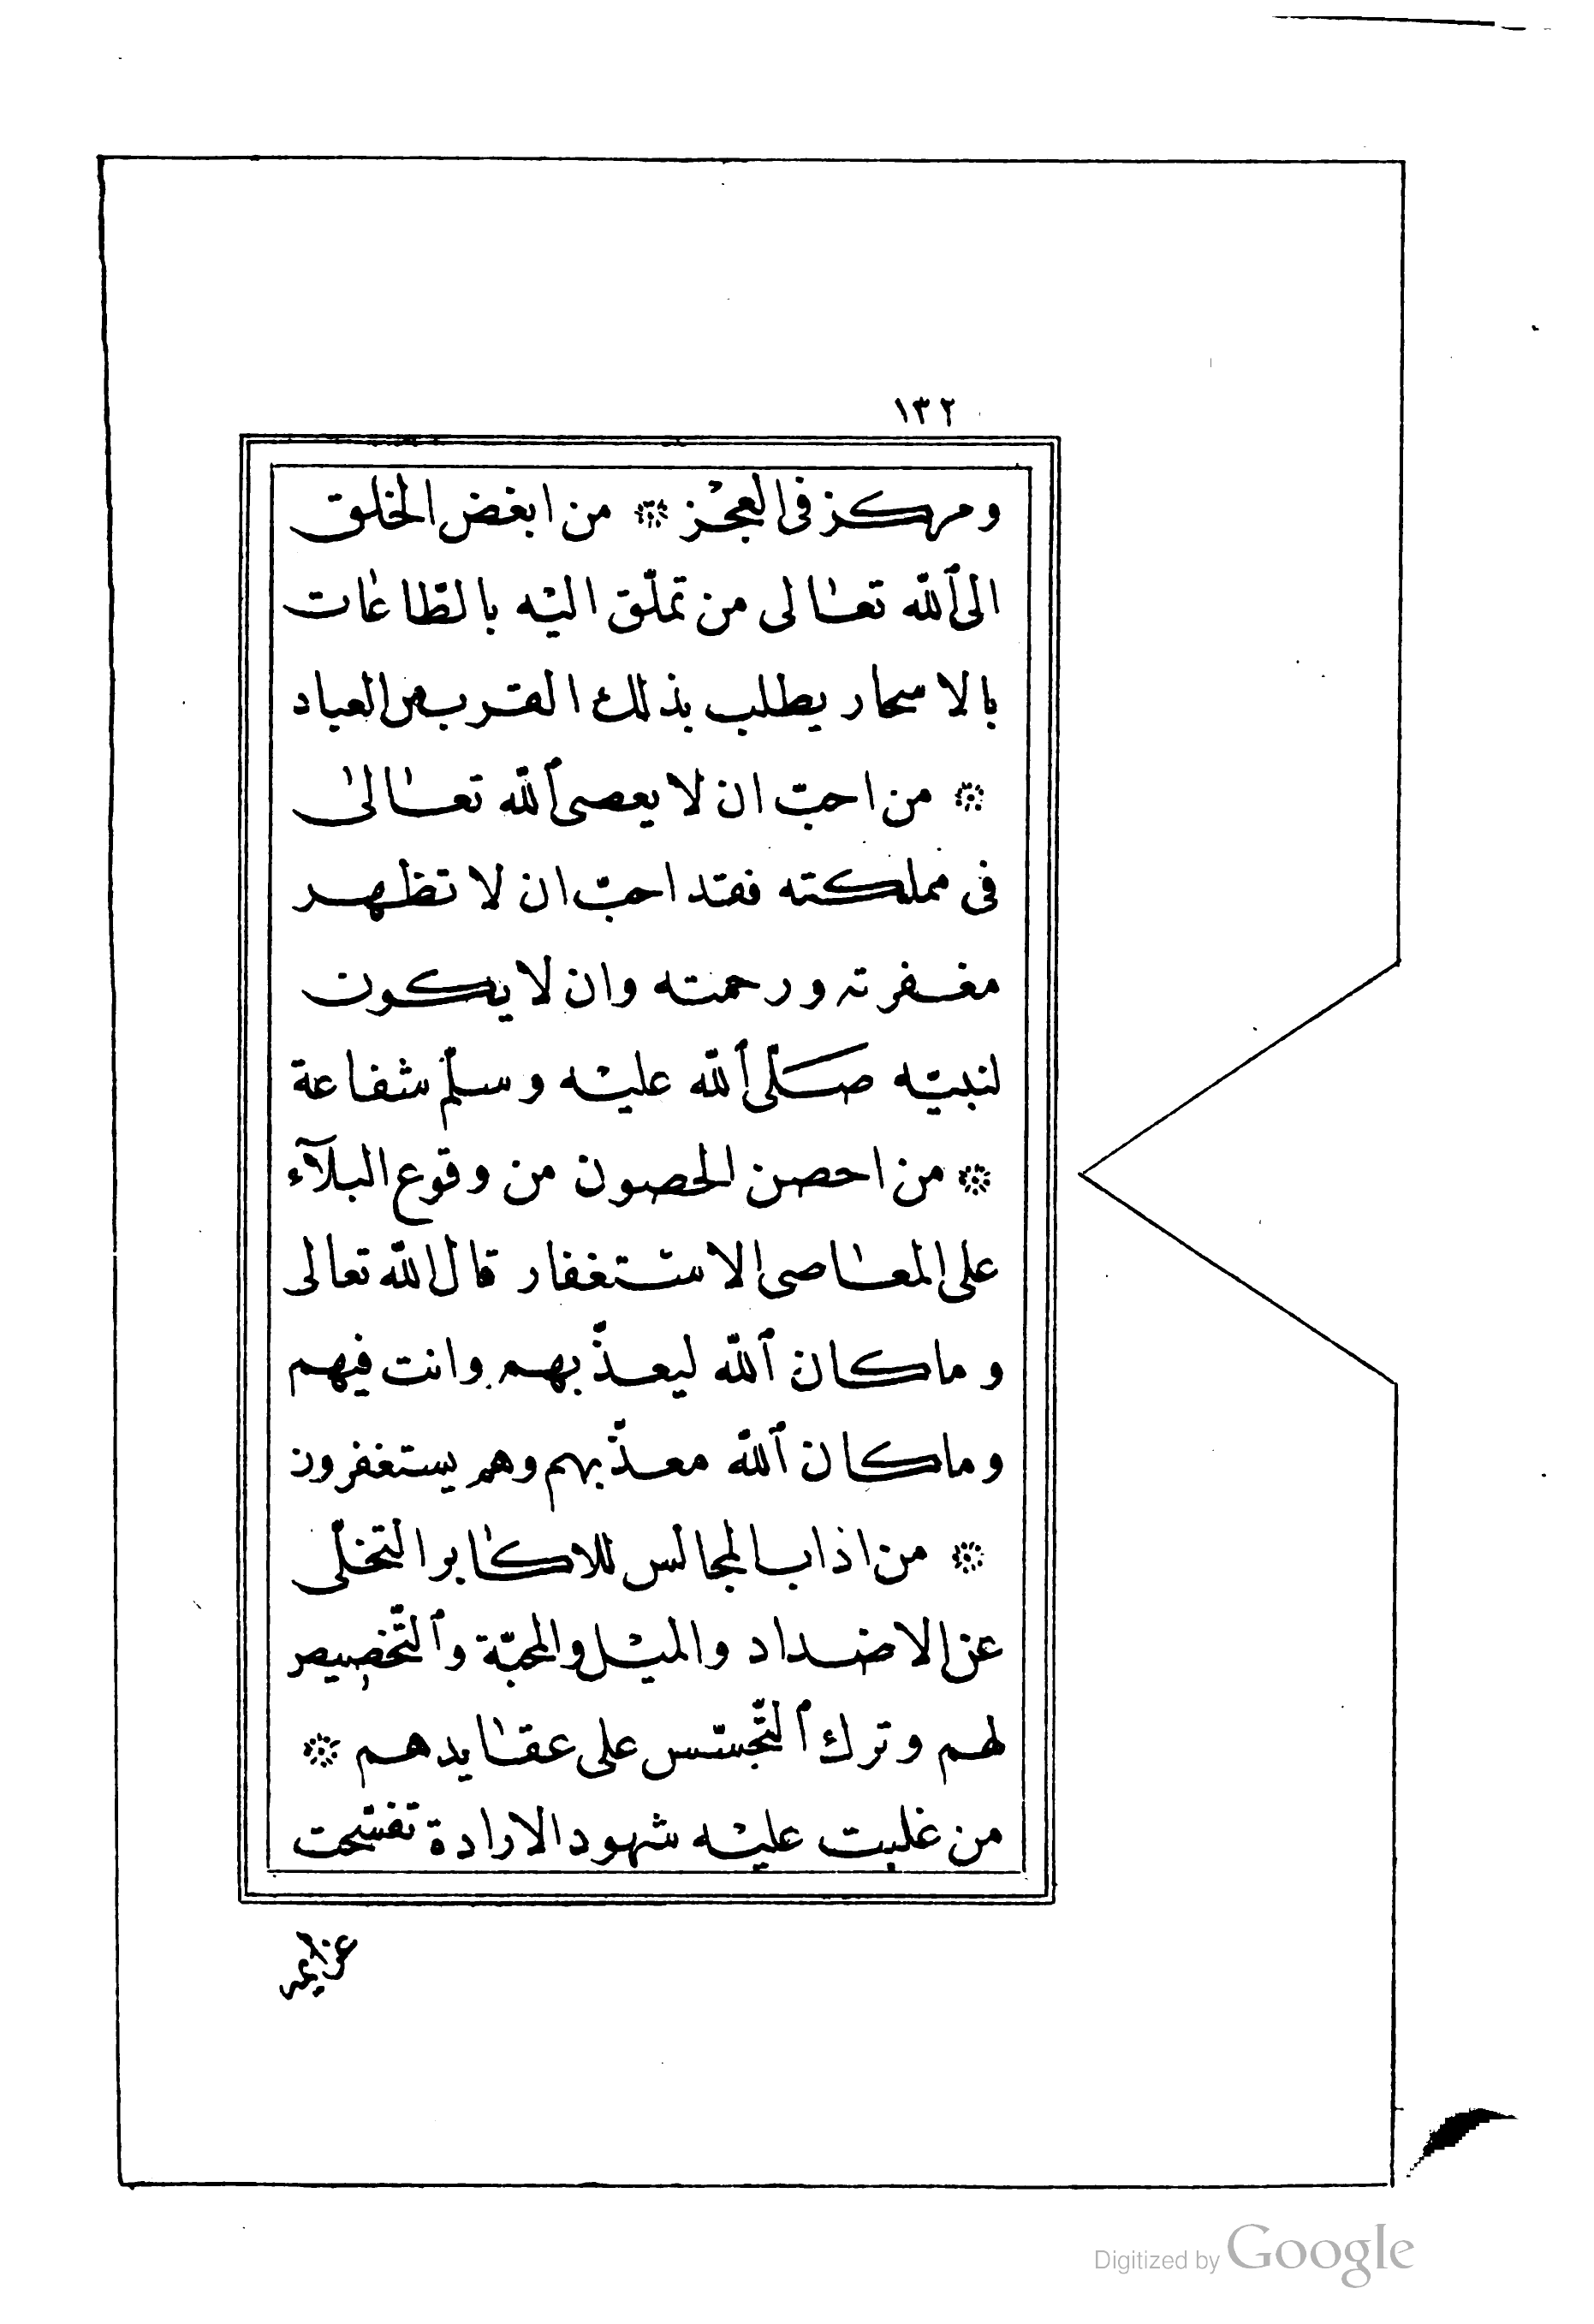 ١٣٢
ومركز في العجْز ۞ من ابغض الخلق
الى ٱللّه تعٰالى من تملّق اليْه بالطّاعٰات
بالاسحار يطلب بذلك القرب من العباد
۞ من احبّ ان لا يعصى ٱللّه تعٰالىٰ
فى مملكته فقد احبّ ان لا تظهر
مغفرته ورحمته وان لا يكون
لنبيّه صَلّى ٱللّه عليْه وسلّم شفاعة
۞ من احصن الحصون من وقوع البلآء
على المعٰاصى الاسْتغفار قال اللّه تعالى
وماكان ٱللّه ليعذّبهم وانت فيهم
وماكان ٱللّه معذّبهم وهم يستغفرون
۞ من اذاب المجالس للاكٰابر التخلّى
عن الاضداد والميْل والمحبّة وٱلتّخصِيص
لهم وترك ٱلتّجسّس على عقٰايدهم ۞
من غلبت عليْه شهود الارادة تفسّخت
عزايمه
Digitized by Google